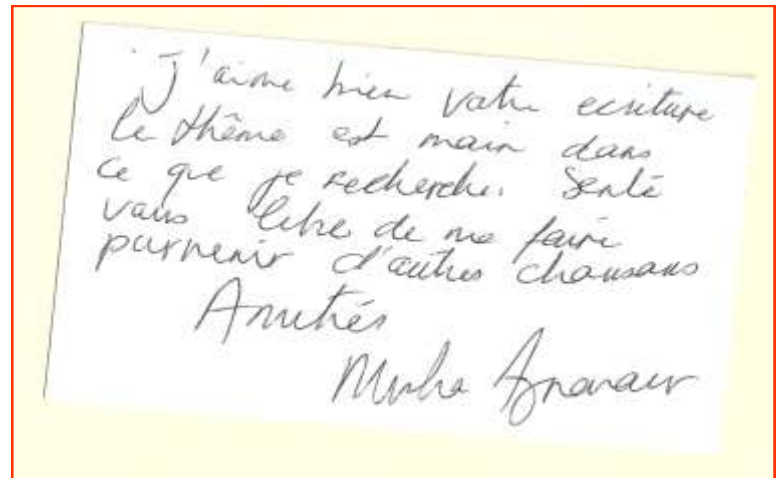 J'aime bien votre ecriture
le thême est main dans
ce que je recherche. Sentez
vous libre de me faire
parvenir d'autres chansons
Amitiés
Misha Aznavour